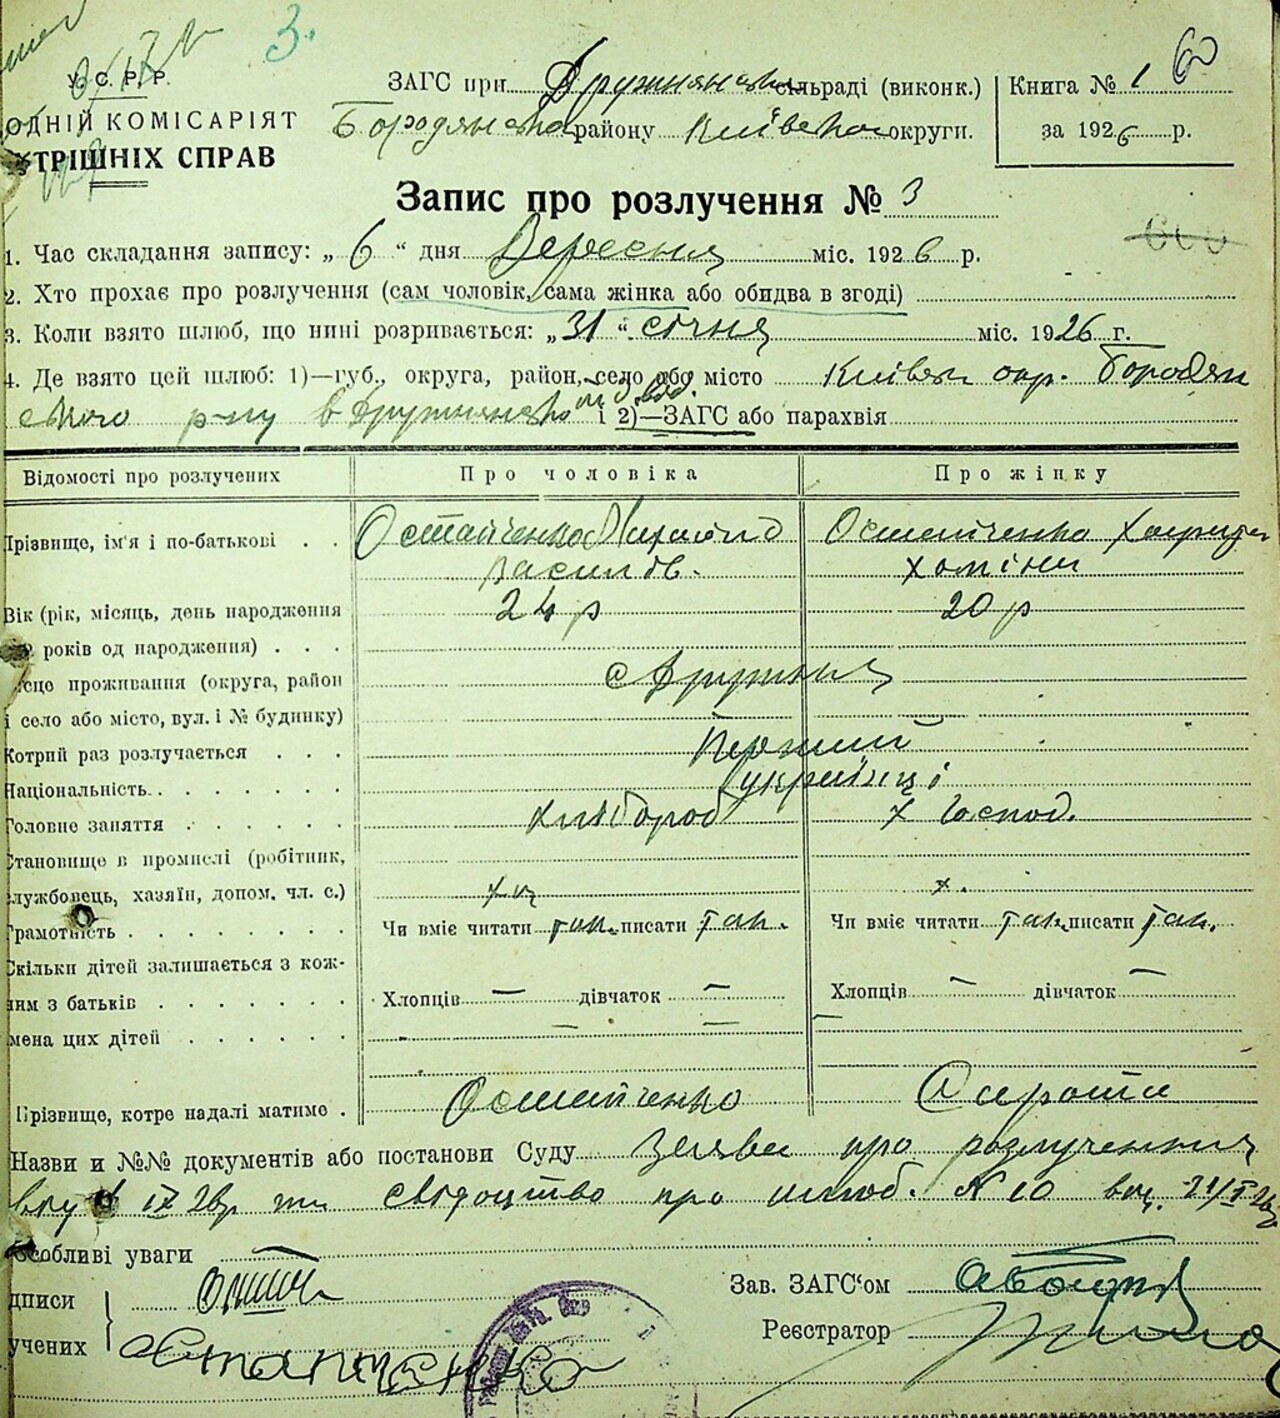 3.
60
У.С.Р.Р.
ОДНІЙ КОМІСАРІЯТ
ТРІШНІХ СПРАВ
ЗАГС при Дружнянськ сільраді (виконк.)
Бородянськ району Київської округи.
Книга № 1
за 1926 р.
Запис про розлучення № 3
1. Час складання запису: „ 6 “ дня Вересня міс. 1926 р.
2. Хто прохає про розлучення (сам чоловік, сама жінка або обидва в згоді)
3. Коли взято шлюб, що нині розривається: „31“ січня міс. 1926 г.
4. Де взято цей шлюб: 1)—губ., округа, район, село або місто Київськ окр. Бородян
ського р-ну в Дружнянськ і 2)—ЗАГС або парахвія
Відомості про розлучених Про чоловіка Про жінку
Прізвище, ім'я і по-батькові . . Остапченко Василів. Остапченко Хомівна
Вік (рік, місяць, день народження 24 р 20 р
років од народження) . . .
сце проживання (округа, район с Дружня
і село або місто, вул. і № будинку)
Котрий раз розлучається . . . Перший
Національність. . . . . . . українці
Головне заняття . . . . . . хлібороб х господ.
Становище в промислі (робітник,
службовець, хазяїн, допом. чл. с.)
Грамотність . . . . . . . . Чи вміє читати так. писати так. Чи вміє читати так. писати так.
Скільки дітей залишається з кож-
ним з батьків . . . . . . . Хлопців — дівчаток — Хлопців — дівчаток —
мена цих дітей . . . . . . — —
Прізвище, котре надалі матиме . Остапченко Сирота
Назви и №№ документів або постанови Суду Заява про розлучення
IX 26р та свідоцтво про шлюб. № 10 від.
Особливі уваги —
дписи
учених Остапченко
Зав. ЗАГС‘ом
Реєстратор